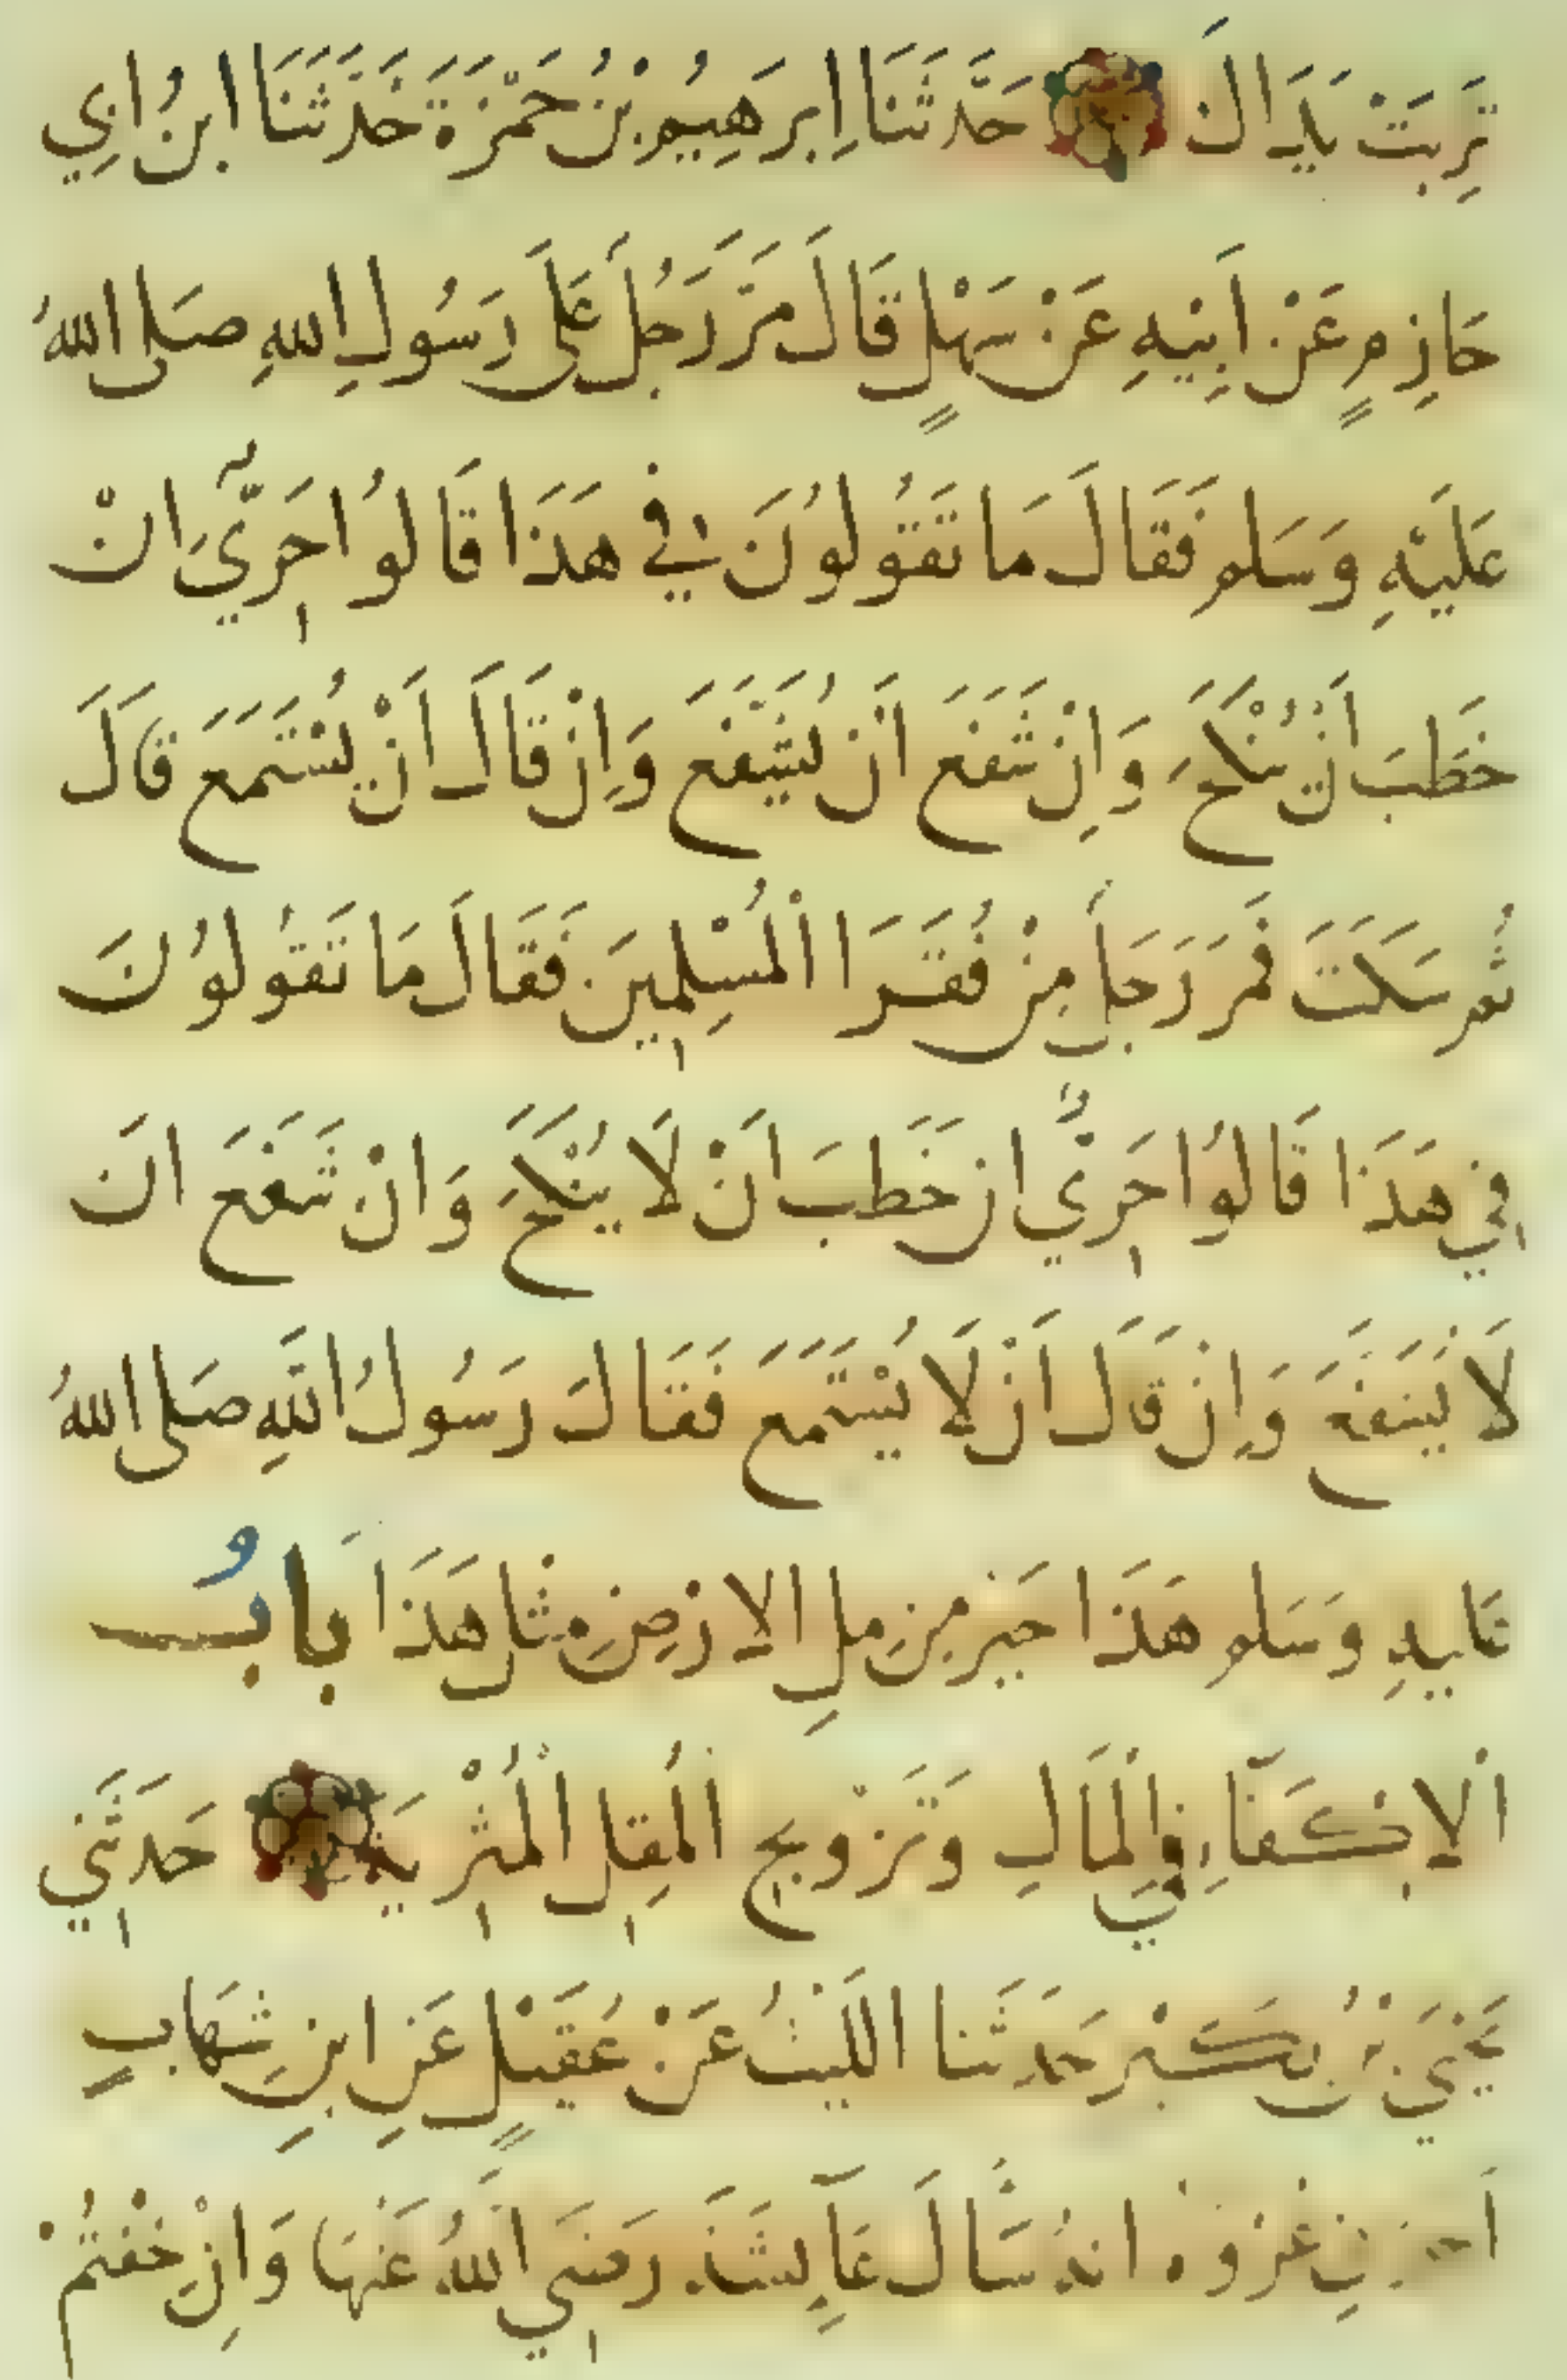 تَرِبَتْ يَدَاكَ حَدَّثَنَا اِبرَهِيمُ بْنُ حَمْزَةَ حَدَّثَنَا ابنُ ابِي
حَازِمٍ عَنْ اَبِيْهِ عَنْ سَهْلٍ قَالَ مَرَّ رَجُلٌ عَلَى رَسُولِ اللهِ صَلى اللهُ
عَلَيْهِ وَسَلم فَقَالَ مَا تَقُولُونَ فِي هَذَا قَالُوا حَرِيٌّ انْ
خَطَبَ اَنْ يُنْكَحَ وَاِنْ شَفَعَ اَنْ يُشَفَّعَ وَاِنْ قَالَ اَنْ يُسْتَمَعَ قَالَ
ثُم سَكَتَ فَمَرَ رَجلٌ مِنْ فُقَرَا الْمُسْلِمِينَ فَقَالَ مَا تَقُولُونَ
فِي هَذَا قَالُوا حَرِيٌّ ان خَطَبَ اَنْ لَا يُنْكَحَ وَانْ شَفَعَ انَ
لَا يُشَفَعَ وَاِنْ قَالَ اَنْ لَا يُسْتَمَعَ فَقَالَ رَسُولُ اللهِ صَلى اللهُ
عَليهِ وَسَلم هَذَا خَيرٌ مِنْ مِلِ الارْضِ مِثْل هَذَا بَابُ
الْاكْفَاءِ فِي الْمَالِ وَتَزْوِيجِ الْمُقِلِ الْمُثْرِيَة حَدَثَنِي
يَحْيَى بْنُ بُكَيْر حَدَثَنا اللَيْثُ عَنْ عُقَيْلٍ عَنِ ابنِ شِهَابٍ
اَخبَرَنِي عُرْوَة انهُ سَاَلَ عَايِشَة رَضِيَ اللهُ عَنْهَا وَانْ خِفْتُمْ